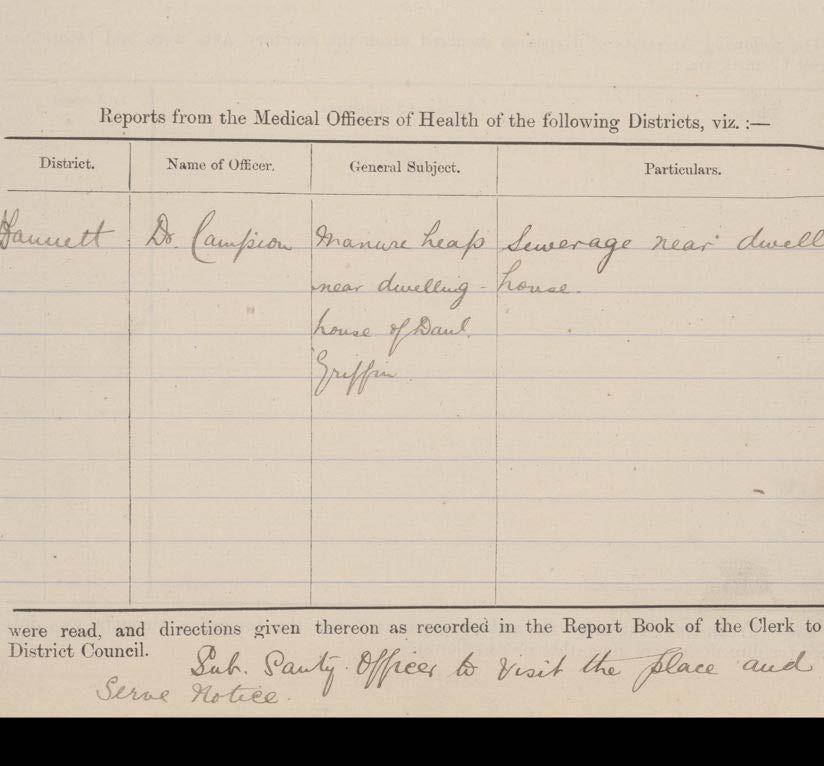 Reports from the Medical Officers of Health of the following Districts, viz. :—
District. Name of Officer. General Subject. Particulars.
Dr. Campion Manure heap Sewerage near dwell
near dwelling - house.
house of Danl.
Griffin
were read, and directions given thereon as recorded in the Report Book of the Clerk to
District Council.
Sub. Santy. Officer to visit the place and
Serve Notice.